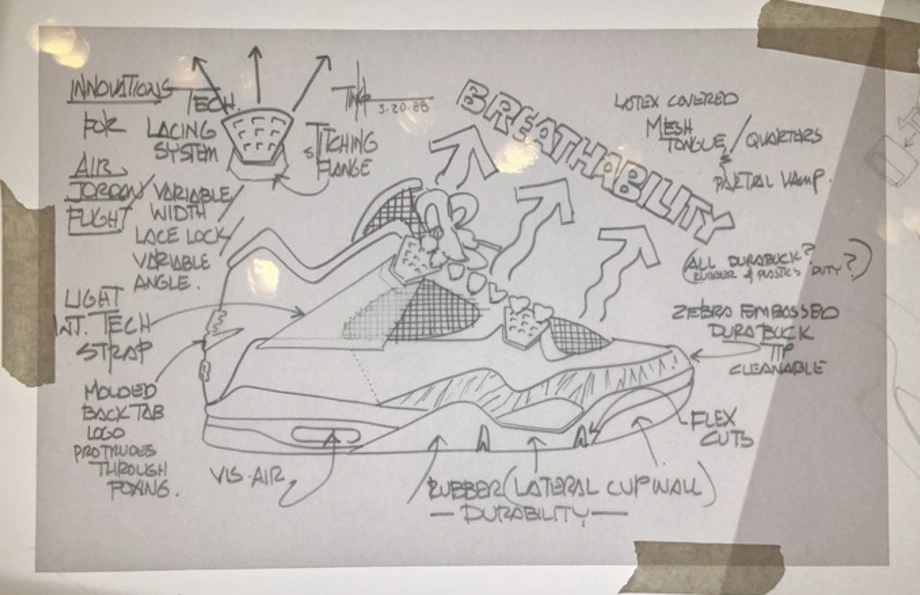 INNOVATIONS
FOR
AIR
JORDAN/
FLIGHT
TECH.
LACING
SYSTEM
STITCHING
FLANGE
VARIABLE
WIDTH
LACE LOCK
VARIABLE
ANGLE.
3.20.88
BREATHABILITY
LATEX COVERED
MESH
TONGUE / QUARTERS
&
PARTIAL VAMP.
(ALL DURABUCK?
RUBBER & PLASTICS DUTY?)
ZEBRA EMBOSSED
DURABUCK
TIP
CLEANABLE
LIGHT
INT. TECH
STRAP
MOLDED
BACK TAB
LOGO
PROTRUDES
THROUGH
FOXING.
VIS-AIR
FLEX
CUTS
RUBBER (LATERAL CUPWALL)
— DURABILITY —